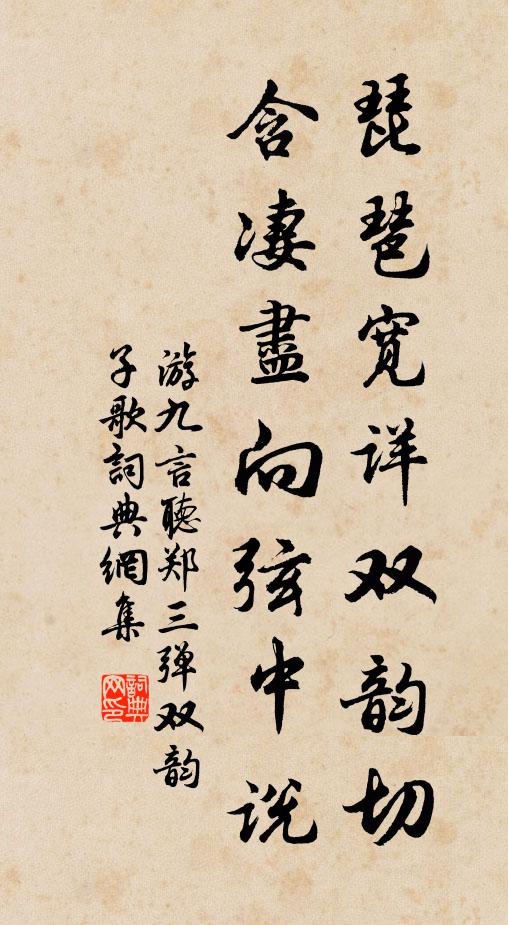 琵琶宽详双韵切
含凄盡向弦中说
游九言聽郑三弹双韵
子歌詞典網集
詞典
网印